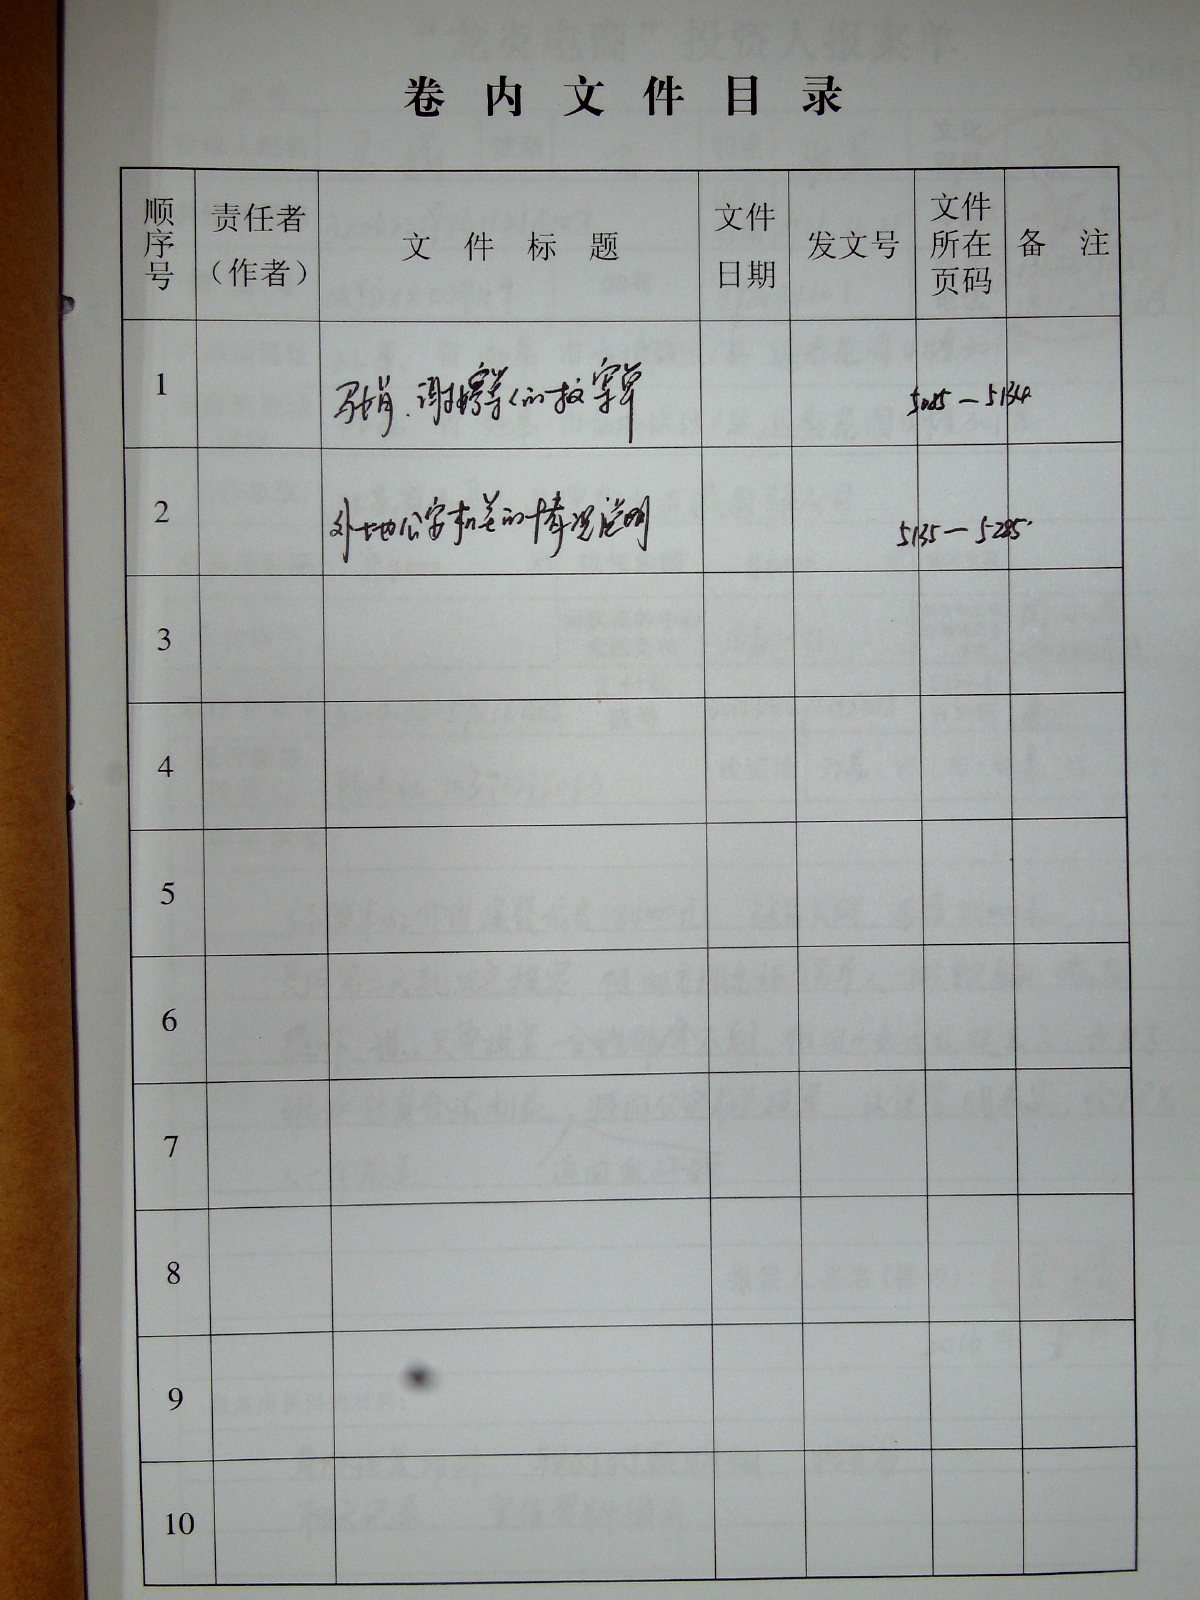 卷内文件目录
顺序号 责任者（作者） 文件标题 文件日期 发文号 文件所在页码 备注
1 马娟、谢婷等人的报案单 5085—5134
2 外地公安机关的情况说明 5135—5285
3
4
5
6
7
8
9
10